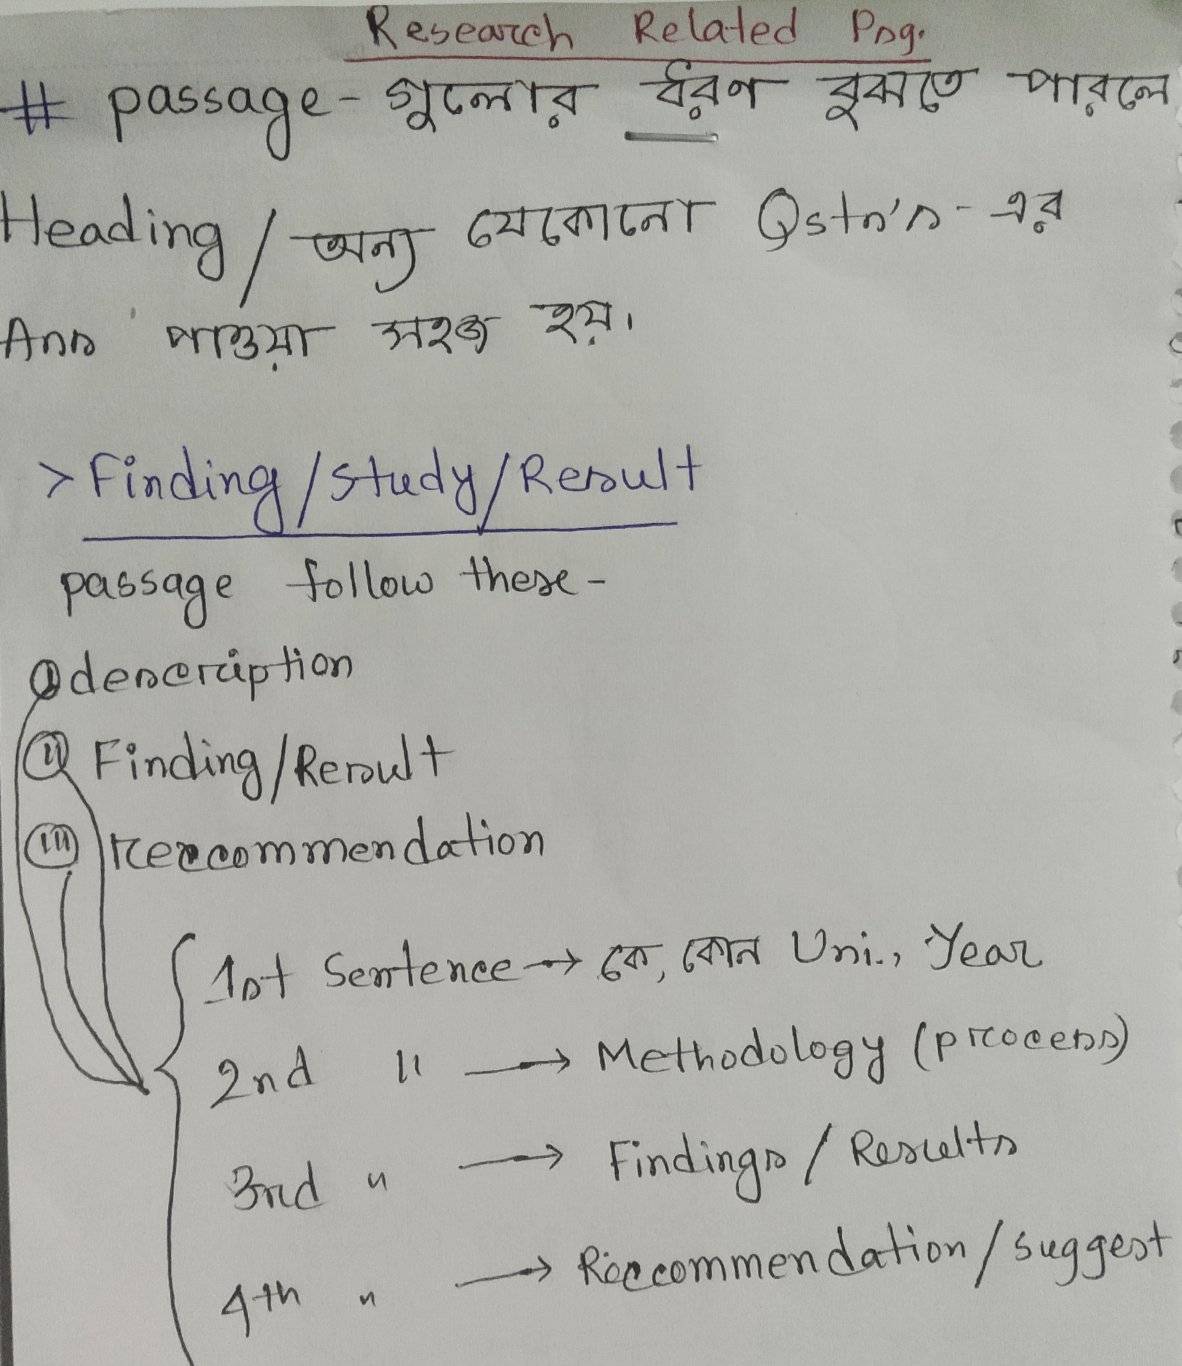 Research Related Psg.
# passage-গুলোর ধরণ বুঝতে পারলে
Heading/অন্য যেকোনো Qstn's-এর
Ans পাওয়া সহজ হয়।
> Finding/Study/Result
passage follow these-
i description
ii Finding/Result
iii Reccommendation
1st Sentence → কে, কোন Uni., Year
2nd " → Methodology (process)
3rd " → Findings / Results
4th " → Reccommendation/suggest